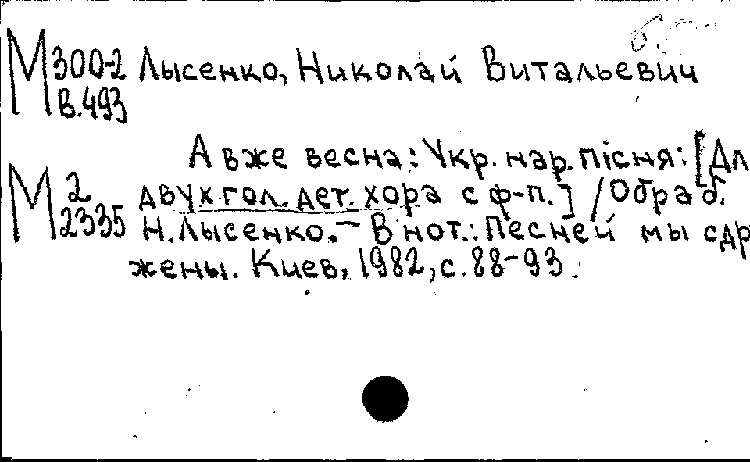 М 300-2 Лысенко, Николай Витальевич
В.493
А вже весна: Укр. нар. пісня: [Дл
М 2 двух гол. дет. хора с ф-п.] / Обраб.
2335 Н. Лысенко. – В нот.: Песней мы сдр
жены. Киев, 1982, с. 88-93.